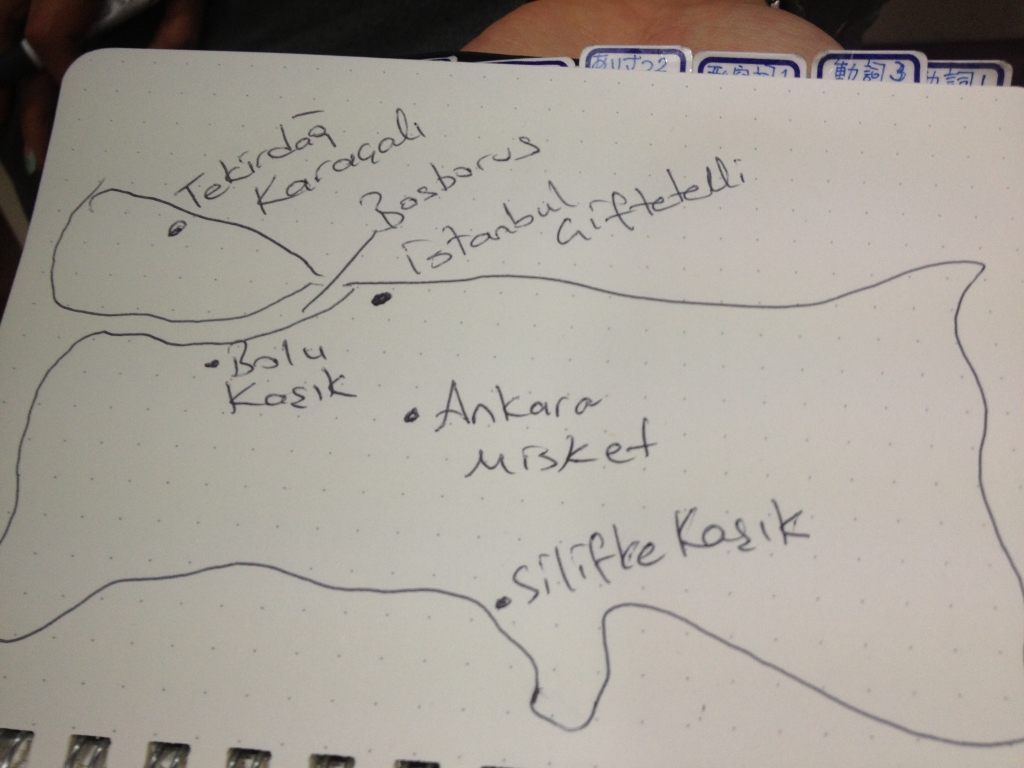 あいさつ2
動詞3
動詞1
Tekirdağ
Karaçalı
Bosborus
istanbul
Çiftetelli
Bolu
Kaşık
Ankara
Misket
Silifke Kaşık